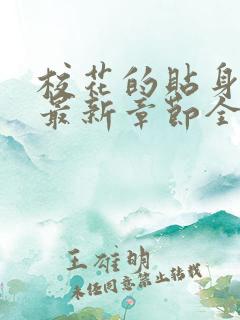 校花的贴身
最新章节全
王雄明
未经同意禁止转载